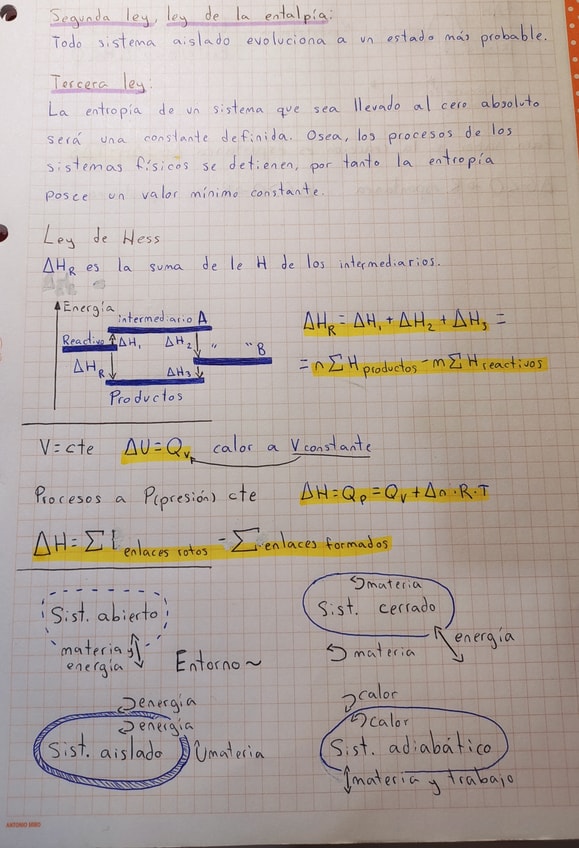 Segunda ley, ley de la entalpía:
Todo sistema aislado evoluciona a un estado más probable.
Tercera ley:
La entropía de un sistema que sea llevado al cero absoluto
será una constante definida. Osea, los procesos de los
sistemas físicos se detienen, por tanto la entropía
posee un valor mínimo constante.
Ley de Hess
ΔH_R es la suma de le H de los intermediarios.
Energía
intermediario A
Reactivo ΔH₁ ΔH₂ " " B
ΔH_R ΔH₃
Productos
ΔH_R = ΔH₁ + ΔH₂ + ΔH₃ =
= n∑H productos - m∑H reactivos
V=cte ΔU=Qᵥ calor a V constante
Procesos a P(presión) cte ΔH=Qₚ=Qᵥ+Δn·R·T
ΔH=∑ enlaces rotos - ∑ enlaces formados
Sist. abierto
materia y
energía
Entorno~
materia
Sist. cerrado
energía
materia
energía
energía
Sist. aislado materia
calor
calor
Sist. adiabático
materia y trabajo
ANTONIO MIRO